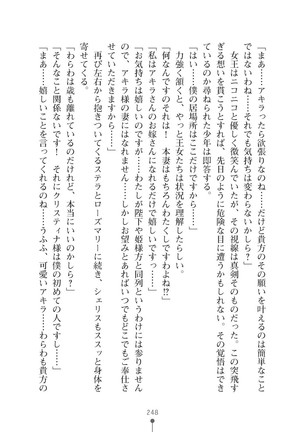 「まぁ……アキラったら欲張りなのね……だけど貴方のその願いを叶えるのは簡単なこと
じゃないわ。それでも気持ちは変わらないかしら？」
女王はニコニコと優しく微笑んでいたが、その視線は真剣そのものだった。この突飛す
ぎる想いを貫こうとすれば、先日のように危険な目に遭うかもしれない。その覚悟はでき
ているのか尋ねられた少年は即答する。
「はい……僕の居場所はここだけですから」
力強く頷くと、やっと王女たちは状況を理解したらしい。
「何なんですのそれは！　本妻はもちろんわたくしですわよね!?」
「私はアキラさんのお嫁さんになれるだけで嬉しいです……」
「お気持ちは嬉しいのですが……わたしが陛下や姫様方と同列というわけには参りません
ので、アキラ様の妻にはなれません……しかしお望みとあればいつでもどこでもご奉仕さ
せていただきますから……」
再び左右から抱きついてくるステラとローズマリーに続き、シェリスもススッと身体を
寄せてくる。
「わらわは歳も離れているのだけれど、本当にいいのかしら？」
「そんなこと関係ないです！　それにクリスティナ様は僕の初めての人ですし」
「まぁ……嬉しいことを言ってくれるのね……うふふ、可愛いアキラ……わらわも貴方の
248